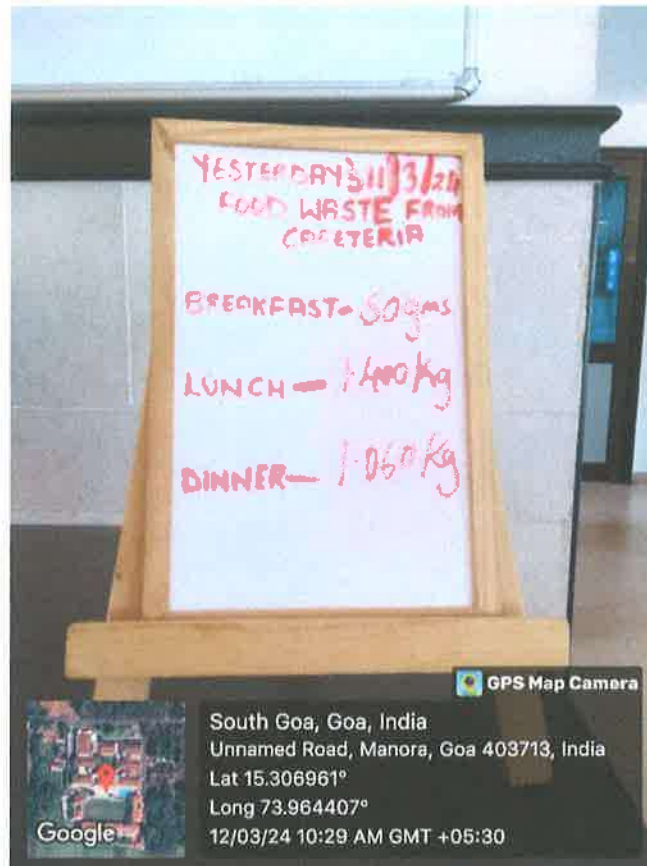 YESTERDAY'S 11/3/24
FOOD WASTE FROM
CAFETERIA
BREAKFAST - 50gms
LUNCH - 1.400 Kg
DINNER - 1.060 Kg
GPS Map Camera
South Goa, Goa, India
Unnamed Road, Manora, Goa 403713, India
Lat 15.306961°
Long 73.964407°
12/03/24 10:29 AM GMT +05:30
Google